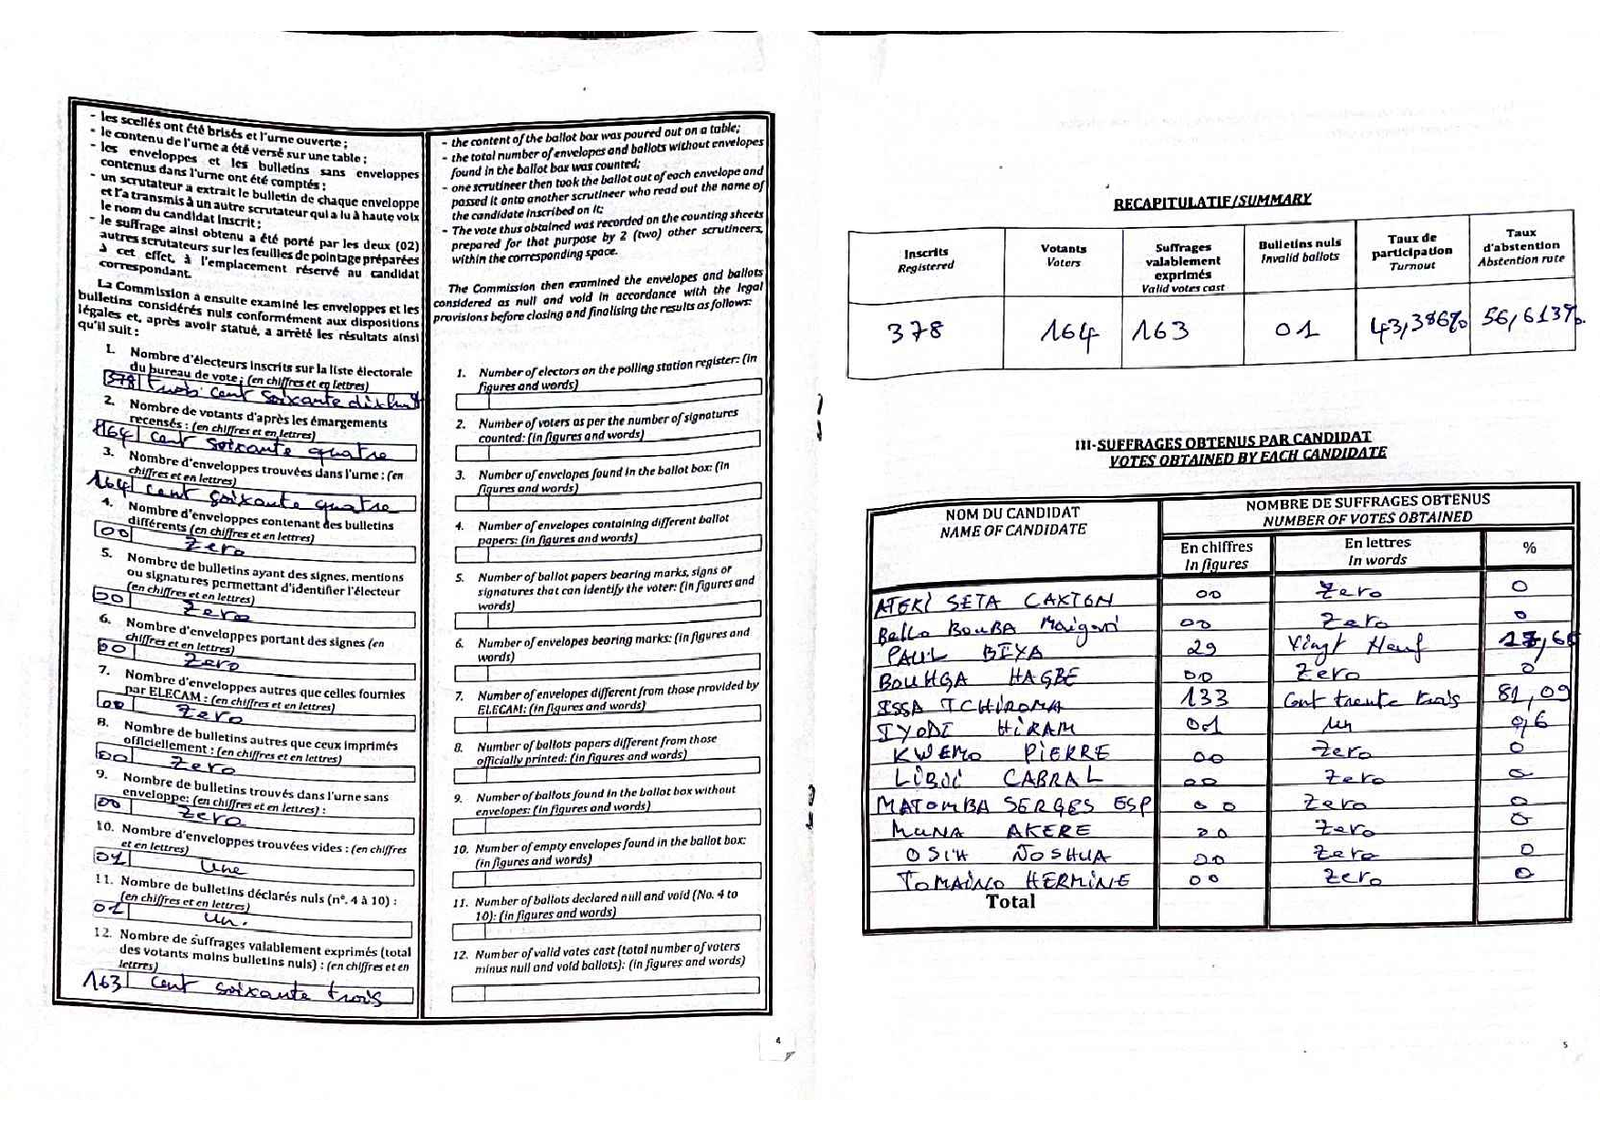 - les scellés ont été brisés et l'urne ouverte ;
- le contenu de l'urne a été versé sur une table ;
- les enveloppes et les bulletins sans enveloppes
contenus dans l'urne ont été comptés ;
- un scrutateur a extrait le bulletin de chaque enveloppe
et l'a transmis à un autre scrutateur qui a lu à haute voix
le nom du candidat inscrit ;
- le suffrage ainsi obtenu a été porté par les deux (02)
autres scrutateurs sur les feuilles de pointage préparées
à cet effet, à l'emplacement réservé au candidat
correspondant.
La Commission a ensuite examiné les enveloppes et les
bulletins considérés nuls conformément aux dispositions
légales et, après avoir statué, a arrêté les résultats ainsi
qu'il suit :
1. Nombre d'électeurs inscrits sur la liste électorale
du bureau de vote : (en chiffres et en lettres)
378 trois cent soixante dix huit
2. Nombre de votants d'après les émargements
recensés : (en chiffres et en lettres)
164 cent soixante quatre
3. Nombre d'enveloppes trouvées dans l'urne : (en
chiffres et en lettres)
164 cent soixante quatre
4. Nombre d'enveloppes contenant des bulletins
différents (en chiffres et en lettres)
00 Zero
5. Nombre de bulletins ayant des signes, mentions
ou signatures permettant d'identifier l'électeur
(en chiffres et en lettres)
00 Zero
6. Nombre d'enveloppes portant des signes (en
chiffres et en lettres)
00 Zero
7. Nombre d'enveloppes autres que celles fournies
par ELECAM : (en chiffres et en lettres)
00 Zero
8. Nombre de bulletins autres que ceux imprimés
officiellement : (en chiffres et en lettres)
00 Zero
9. Nombre de bulletins trouvés dans l'urne sans
enveloppe: (en chiffres et en lettres) :
00 Zero
10. Nombre d'enveloppes trouvées vides : (en chiffres
et en lettres)
01 Une
11. Nombre de bulletins déclarés nuls (n°. 4 à 10) :
(en chiffres et en lettres)
01 Un.
12. Nombre de suffrages valablement exprimés (total
des votants moins bulletins nuls) : (en chiffres et en
lettres)
163 cent soixante trois
- the content of the ballot box was poured out on a table;
- the total number of envelopes and ballots without envelopes
found in the ballot box was counted;
- one scrutineer then took the ballot out of each envelope and
passed it onto another scrutineer who read out the name of
the candidate inscribed on it;
- The vote thus obtained was recorded on the counting sheets
prepared for that purpose by 2 (two) other scrutineers,
within the corresponding space.
The Commission then examined the envelopes and ballots
considered as null and void in accordance with the legal
provisions before closing and finalising the results as follows:
1. Number of electors on the polling station register: (in
figures and words)
2. Number of voters as per the number of signatures
counted: (in figures and words)
3. Number of envelopes found in the ballot box: (in
figures and words)
4. Number of envelopes containing different ballot
papers: (in figures and words)
5. Number of ballot papers bearing marks, signs or
signatures that can identify the voter: (in figures and
words)
6. Number of envelopes bearing marks: (in figures and
words)
7. Number of envelopes different from those provided by
ELECAM: (in figures and words)
8. Number of ballots papers different from those
officially printed: (in figures and words)
9. Number of ballots found in the ballot box without
envelopes: (in figures and words)
10. Number of empty envelopes found in the ballot box:
(in figures and words)
11. Number of ballots declared null and void (No. 4 to
10): (in figures and words)
12. Number of valid votes cast (total number of voters
minus null and void ballots): (in figures and words)
4
RECAPITULATIF/SUMMARY
Inscrits Registered
Votants Voters
Suffrages valablement exprimés Valid votes cast
Bulletins nuls Invalid ballots
Taux de participation Turnout
Taux d'abstention Abstention rate
378 164 163 01 43,386% 56,613%.
III-SUFFRAGES OBTENUS PAR CANDIDAT
VOTES OBTAINED BY EACH CANDIDATE
NOM DU CANDIDAT
NAME OF CANDIDATE
NOMBRE DE SUFFRAGES OBTENUS
NUMBER OF VOTES OBTAINED
En chiffres In figures
En lettres In words
%
ATEKI SETA CAXTON 00 Zero 0
Bello BOUBA Maigari 00 Zero 0
PAUL BIYA 29 Vingt Neuf
BOUHGA HAGBE 00 Zero 0
ISSA TCHIROMA 133 Cent trente trois 81,09
IYODI HIRAM 001 un 0,6
KWEMO PIERRE 00 Zero 0
LIBII CABRAL 00 Zero 0
MATOMBA SERGES ESP 00 Zero 0
MUNA AKERE 00 Zero 0
OSIH JOSHUA 00 Zero 0
TOMAINO HERMINE 00 Zero 0
Total
5